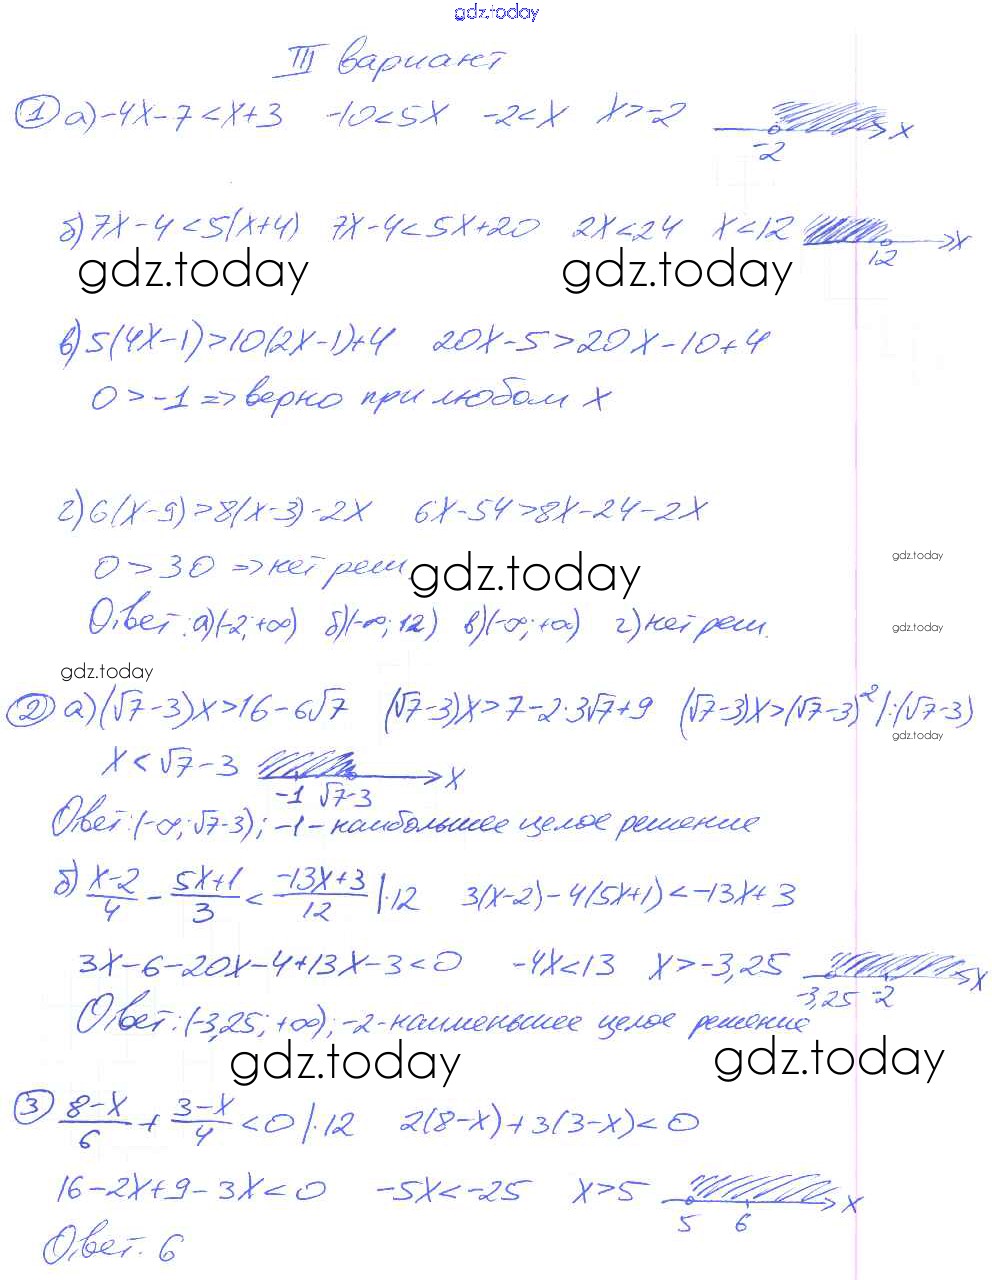 gdz.today
III вариант
1 а) -4x-7<x+3 -10<5x -2<x x>-2 x
-2
б) 7x-4<5(x+4) 7x-4<5x+20 2x<24 x<12 x
12
gdz.today gdz.today
в) 5(4x-1)>10(2x-1)+4 20x-5>20x-10+4
0>-1 => верно при любом x
г) 6(x-9)>8(x-3)-2x 6x-54>8x-24-2x
0>30 => нет реш. gdz.today gdz.today
Ответ: а)(-2;+∞) б)(-∞;12) в)(-∞;+∞) г) нет реш. gdz.today
gdz.today
2 а) (√7-3)x>16-6√7 (√7-3)x>7-2·3√7+9 (√7-3)x>(√7-3)² |:(√7-3)
gdz.today
x<√7-3 x
-1 √7-3
Ответ: (-∞;√7-3); -1-наибольшее целое решение
б) (x-2)/4 - (5x+1)/3 < (-13x+3)/12 |·12 3(x-2)-4(5x+1)<-13x+3
3x-6-20x-4+13x-3<0 -4x<13 x>-3,25 x
-3,25 -2
Ответ: (-3,25;+∞); -2-наименьшее целое решение
gdz.today gdz.today
3 (8-x)/6 + (3-x)/4 <0 |·12 2(8-x)+3(3-x)<0
16-2x+9-3x<0 -5x<-25 x>5 x
5 6
Ответ. 6